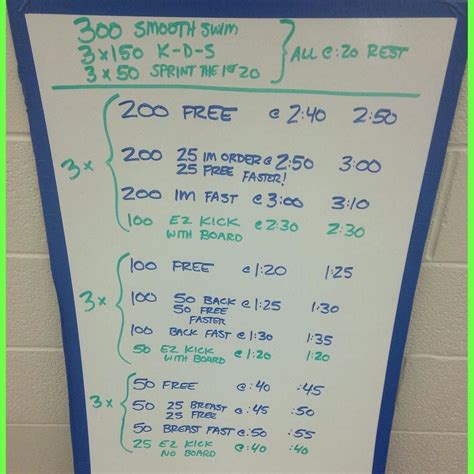 300 SMOOTH SWIM
3x150 K-D-S
3x50 SPRINT THE 1ST 20
ALL @:20 REST
3x
200 FREE @ 2:40 2:50
200 25 IM ORDER @ 2:50 3:00
25 FREE FASTER!
200 IM FAST @ 3:00 3:10
100 EZ KICK @ 2:30 2:30
WITH BOARD
3x
100 FREE @ 1:20 1:25
100 50 BACK @ 1:25 1:30
50 FREE
FASTER
100 BACK FAST @ 1:30 1:35
50 EZ KICK @ 1:20 1:20
WITH BOARD
3x
50 FREE @ :40 :45
50 25 BREAST @ :45 :50
25 FREE
50 BREAST FAST @ :50 :55
25 EZ KICK @ :40 :40
NO BOARD